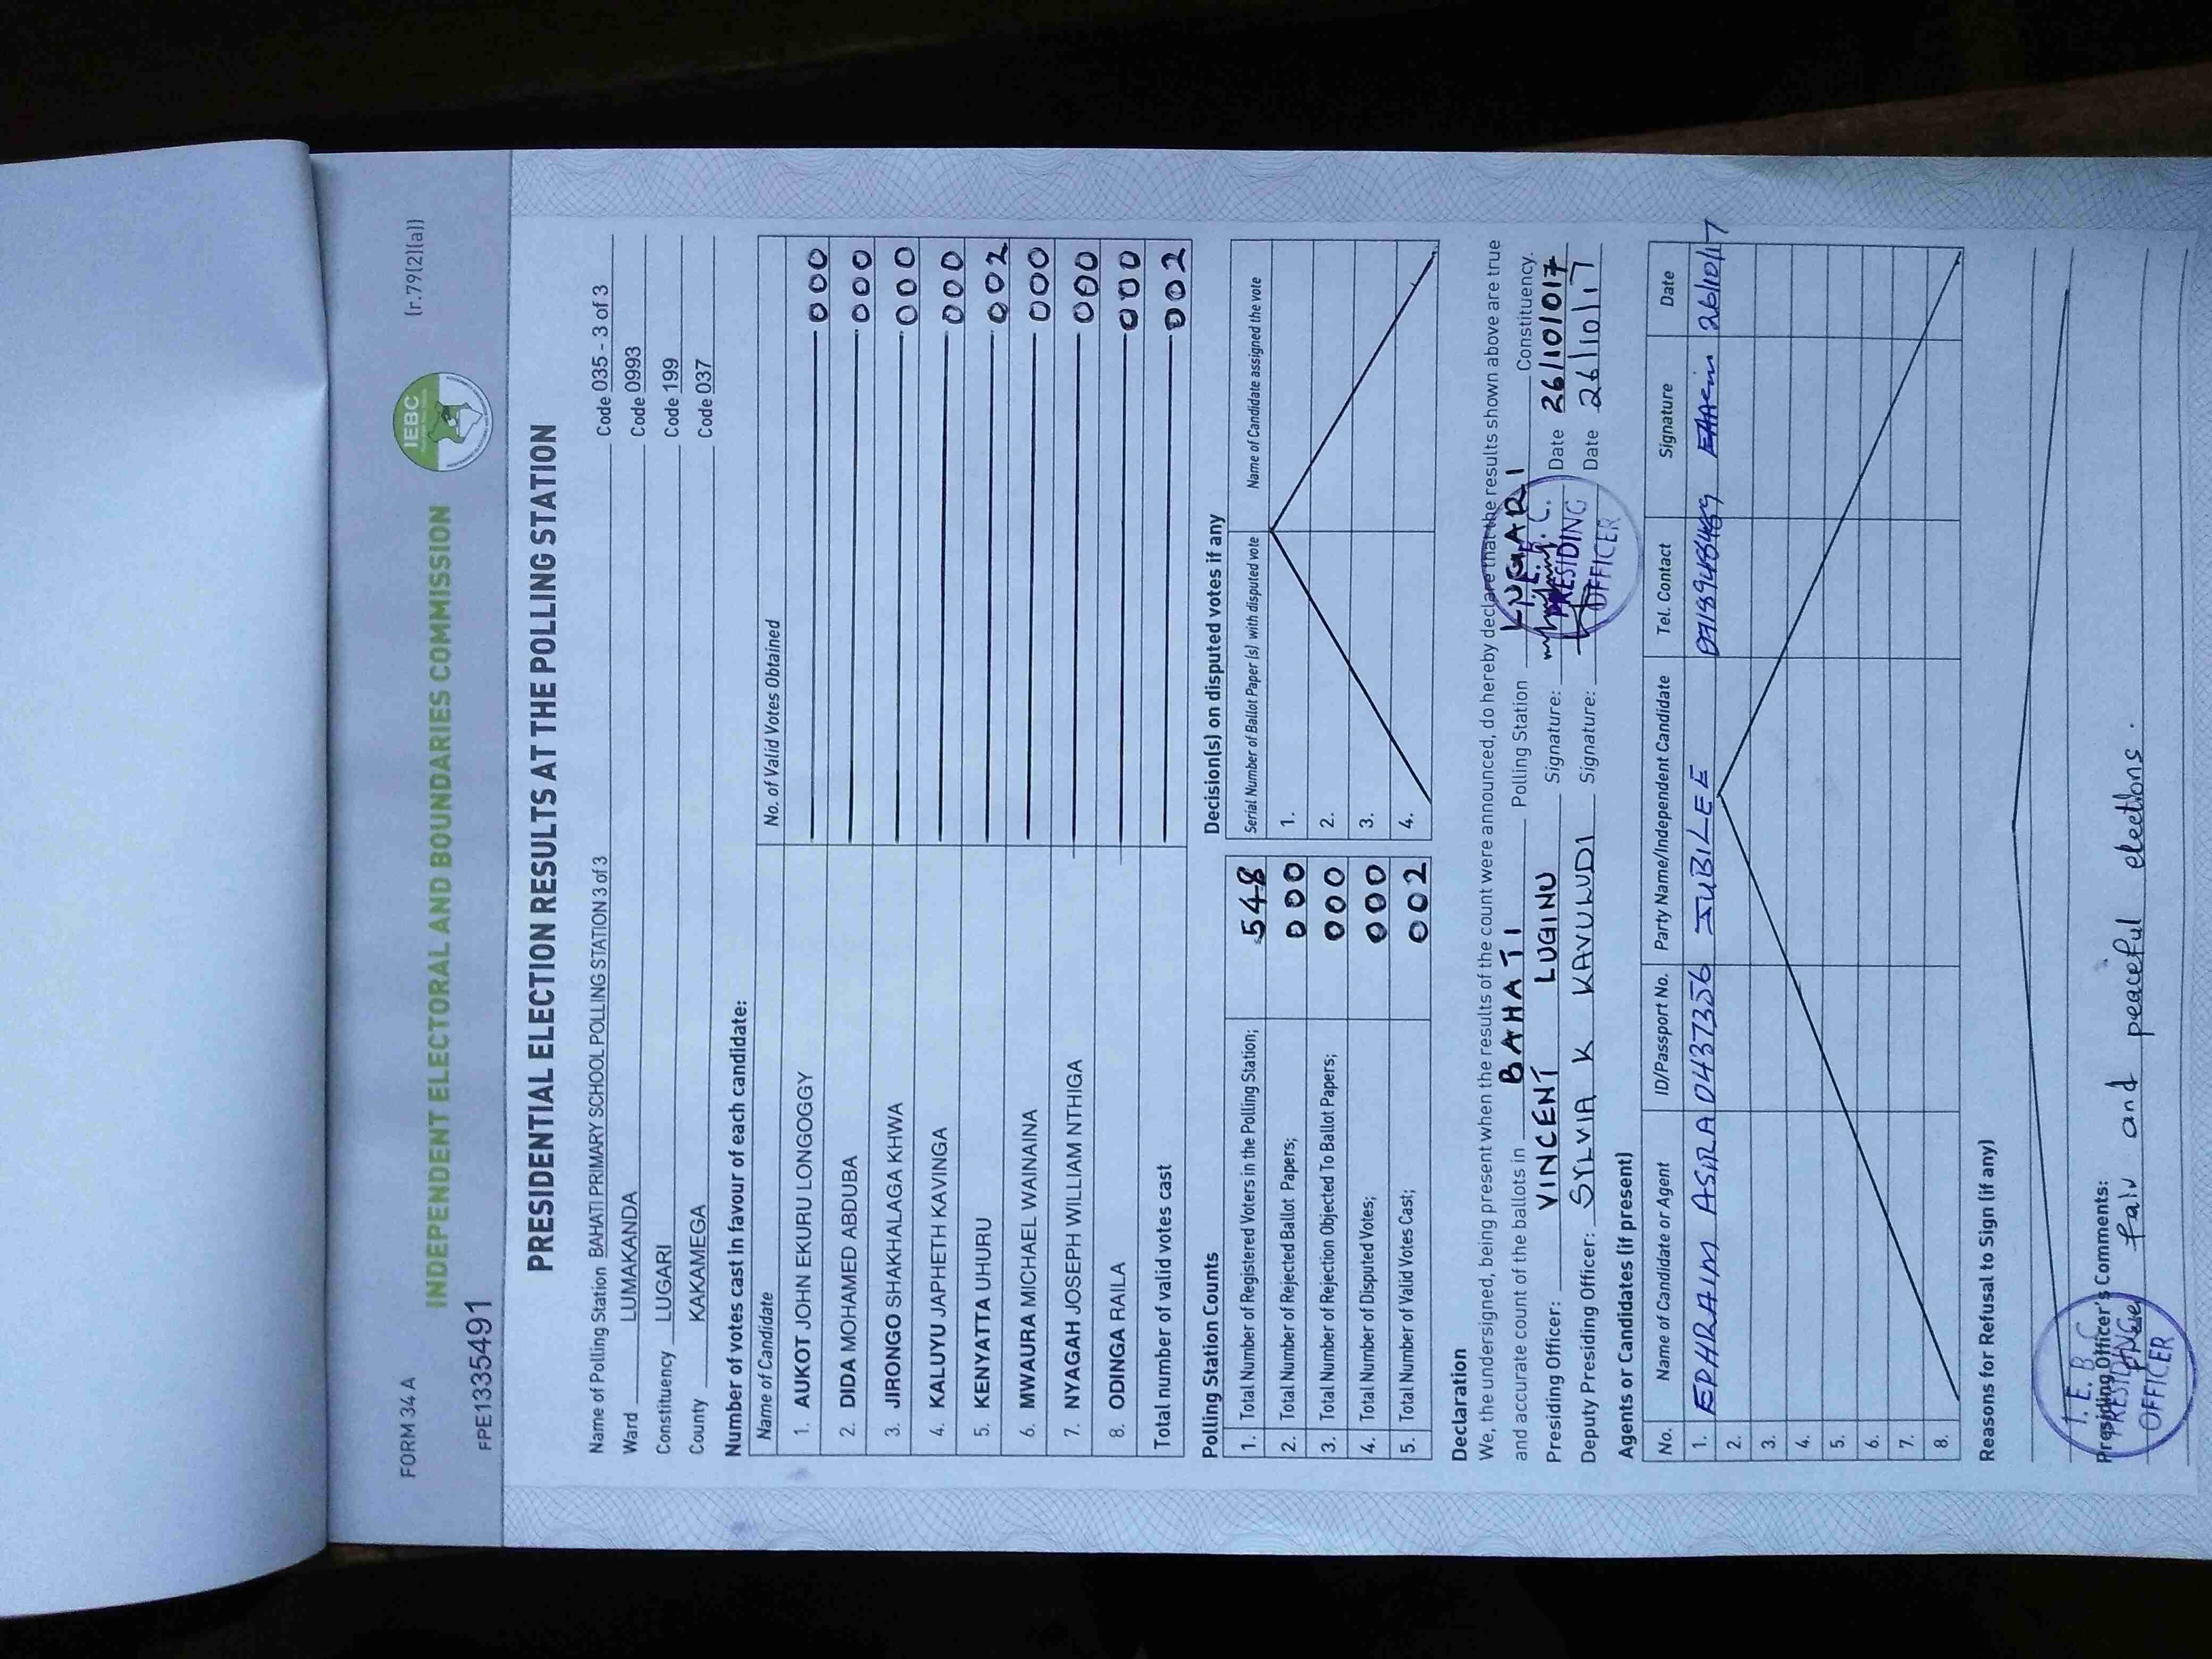 FORM 34 A
(r.79(2)(a))
IEBC
INDEPENDENT ELECTORAL AND BOUNDARIES COMMISSION
FPE1335491
PRESIDENTIAL ELECTION RESULTS AT THE POLLING STATION
Name of Polling Station BAHATI PRIMARY SCHOOL POLLING STATION 3 of 3 Code 035 - 3 of 3
Ward LUMAKANDA Code 0993
Constituency LUGARI Code 199
County KAKAMEGA Code 037
Number of votes cast in favour of each candidate:
Name of Candidate No. of Valid Votes Obtained
1. AUKOT JOHN EKURU LONGOGGY 000
2. DIDA MOHAMED ABDUBA 000
3. JIRONGO SHAKHALAGA KHWA 000
4. KALUYU JAPHETH KAVINGA 000
5. KENYATTA UHURU 002
6. MWAURA MICHAEL WAINAINA 000
7. NYAGAH JOSEPH WILLIAM NTHIGA 000
8. ODINGA RAILA 000
Total number of valid votes cast 002
Polling Station Counts
1. Total Number of Registered Voters in the Polling Station; 548
2. Total Number of Rejected Ballot Papers; 000
3. Total Number of Rejection Objected To Ballot Papers; 000
4. Total Number of Disputed Votes; 000
5. Total Number of Valid Votes Cast; 002
Decision(s) on disputed votes if any
Serial Number of Ballot Paper (s) with disputed vote Name of Candidate assigned the vote
1.
2.
3.
4.
Declaration
We, the undersigned, being present when the results of the count were announced, do hereby declare that the results shown above are true
and accurate count of the ballots in BAHATI Polling Station LUGARI Constituency.
Presiding Officer: VINCENT LUGINU Signature: Date 26/10/017
Deputy Presiding Officer: SYLVIA K KAVULUDI Signature: Date 26/10/17
I.E.B.C.
PRESIDING
OFFICER
Agents or Candidates (if present)
No. Name of Candidate or Agent ID/Passport No. Party Name/Independent Candidate Tel. Contact Signature Date
1. EPHRAIM ASIRA 0437356 JUBILEE 26/10/17
2.
3.
4.
5.
6.
7.
8.
Reasons for Refusal to Sign (if any)
Presiding Officer's Comments:
and peaceful elections.
I.E.B.C
PRESIDING
OFFICER